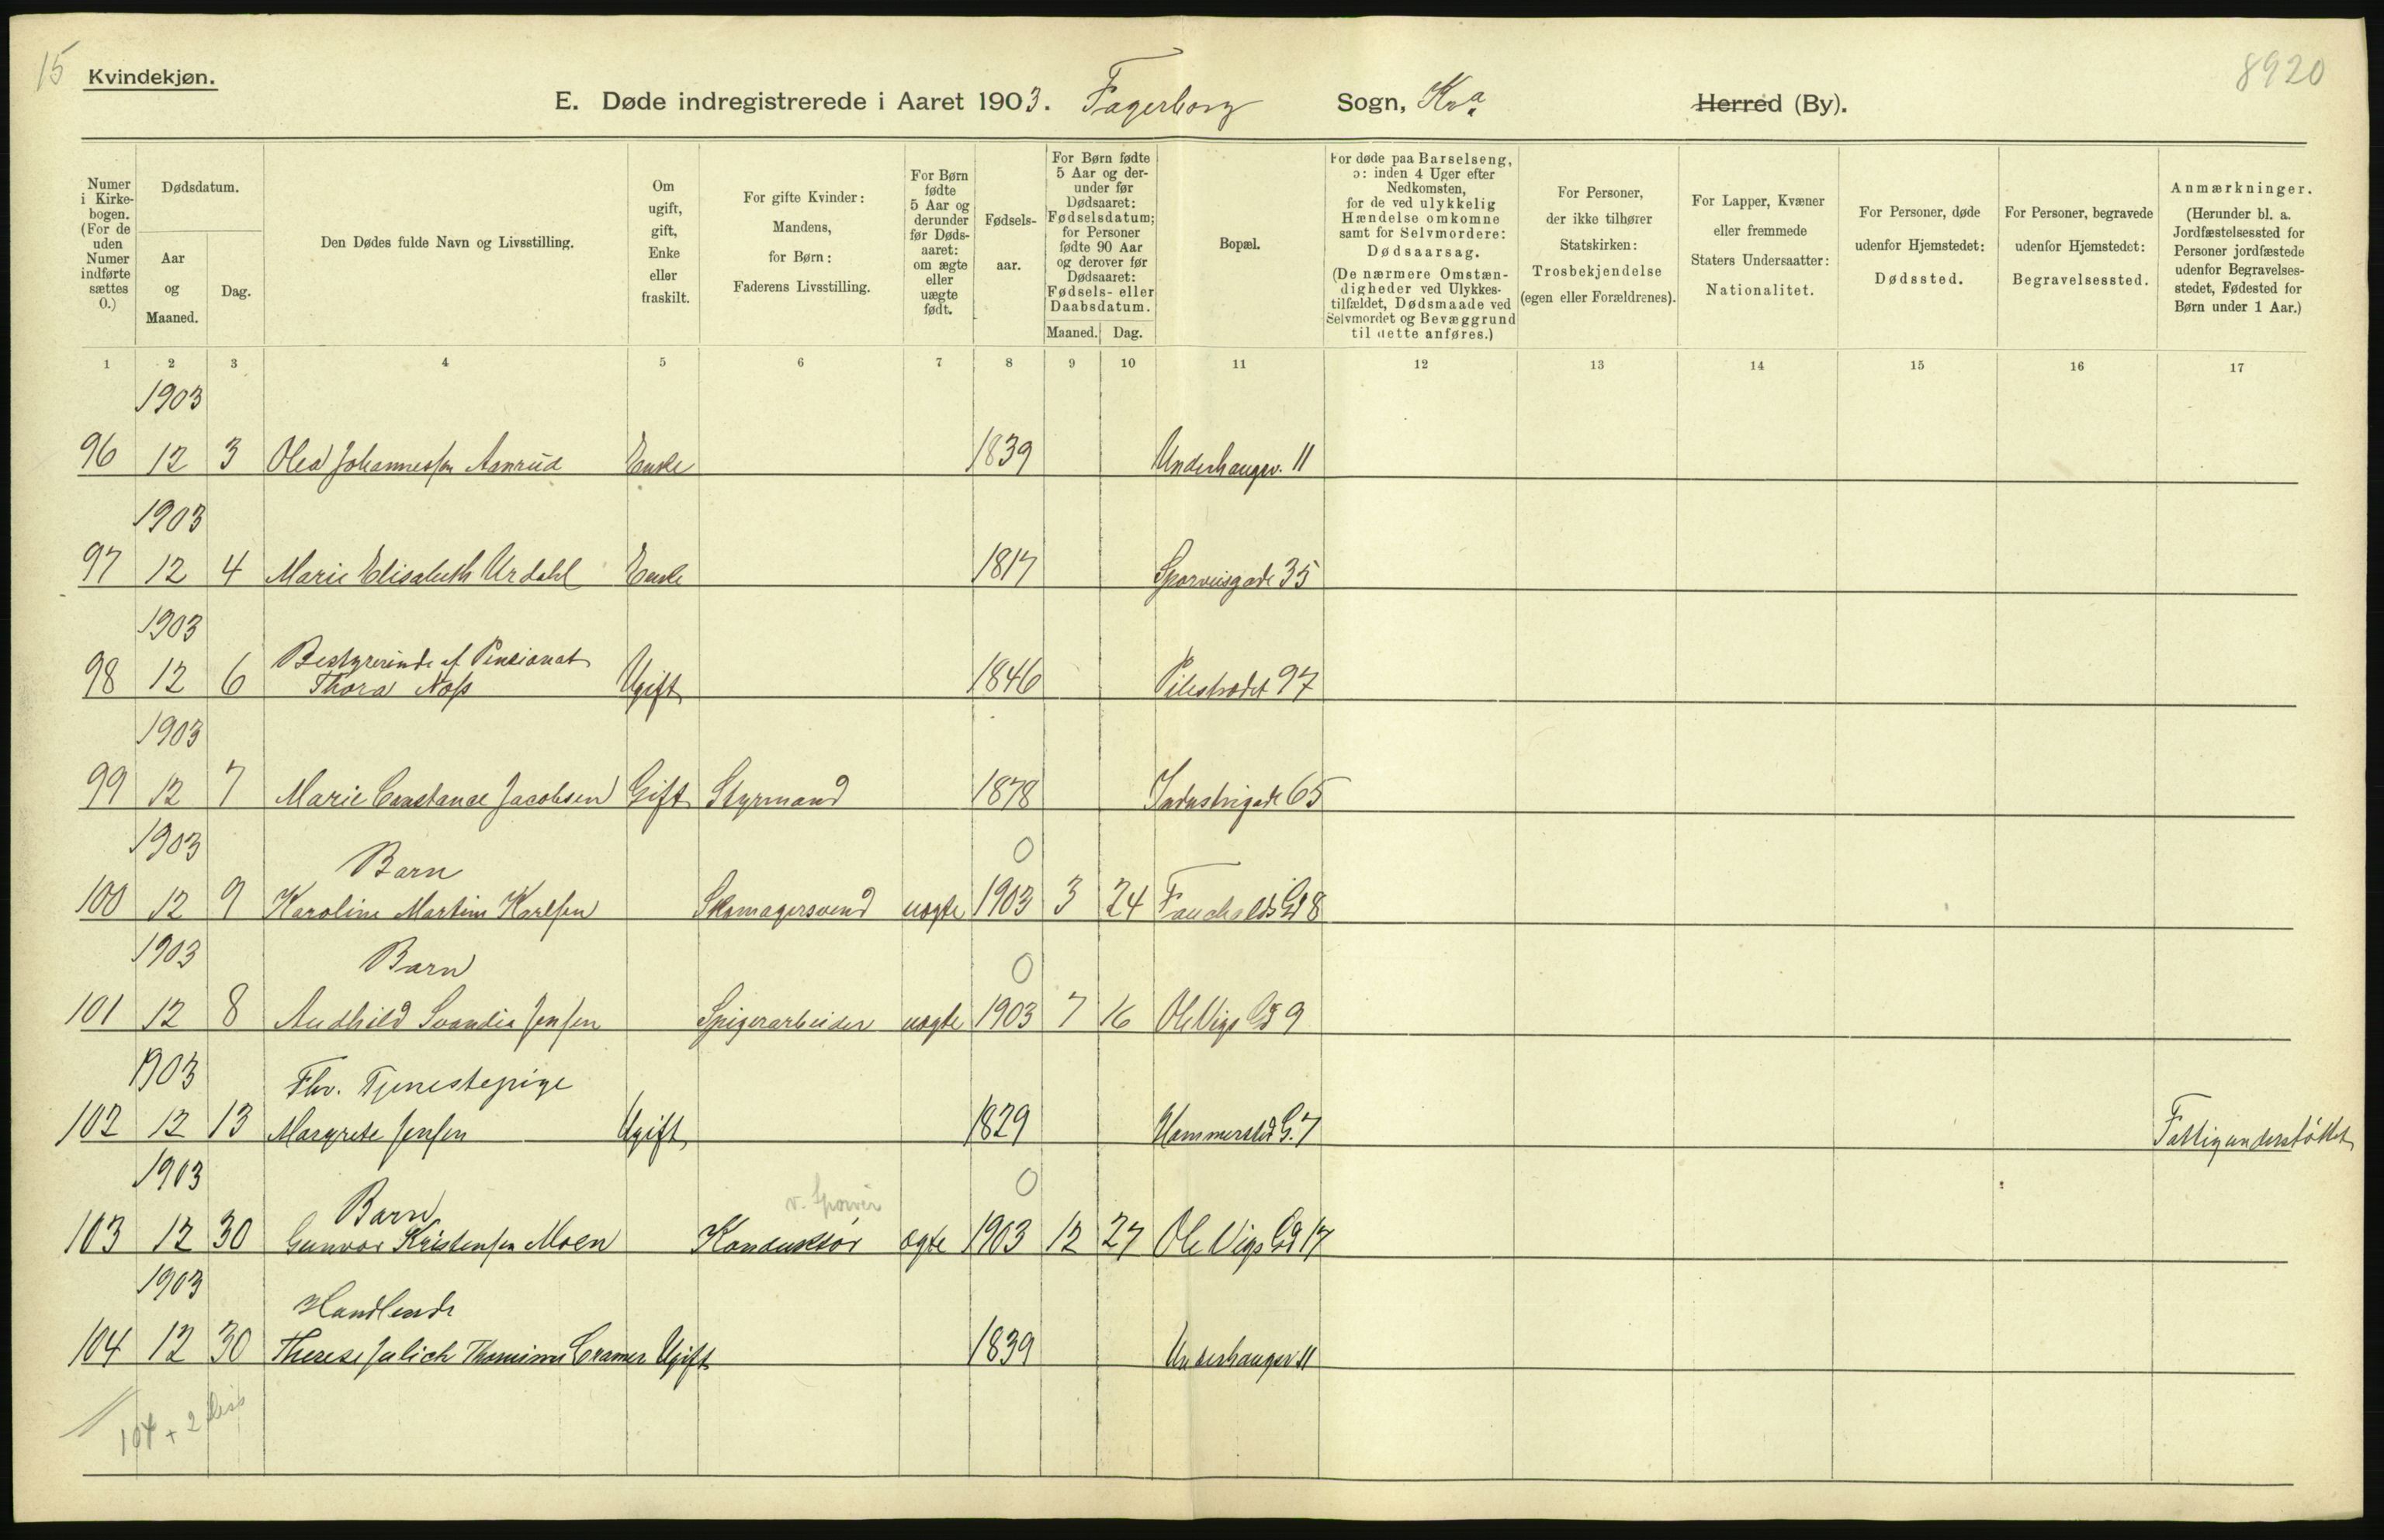 15
Kvindekjøn.
8920
E. Døde indregistrerede i Aaret 1903. Fagerborg Sogn, Kra Herred (By).
Numer i Kirke- bogen. (For de uden Numer indførte sættes 0.)
Dødsdatum.
Aar og Maaned.
Dag.
Den Dødes fulde Navn og Livsstilling.
Om ugift, gift, Enke eller fraskilt.
For gifte Kvinder: Mandens, for Børn: Faderens Livsstilling.
For Børn fødte 5 Aar og derunder før Døds- aaret: om ægte eller uægte født.
Fødsels- aar.
For Børn fødte 5 Aar og der- under før Dødsaaret: Fødselsdatum; for Personer fødte 90 Aar og derover før Dødsaaret: Fødsels- eller Daabsdatum.
Maaned. Dag.
Bopæl.
For døde paa Barselseng, ɔ: inden 4 Uger efter Nedkomsten, for de ved ulykkelig Hændelse omkomne samt for Selvmordere: Dødsaarsag. (De nærmere Omstæn- digheder ved Ulykkes- tilfældet, Dødsmaade ved Selvmordet og Bevæggrund til dette anføres.)
For Personer, der ikke tilhører Statskirken: Trosbekjendelse (egen eller Forældrenes).
For Lapper, Kvæner eller fremmede Staters Undersaatter: Nationalitet.
For Personer, døde udenfor Hjemstedet: Dødssted.
For Personer, begravede udenfor Hjemstedet: Begravelsessted.
Anmærkninger. (Herunder bl. a. Jordfæstelsessted for Personer jordfæstede udenfor Begravelses- stedet, Fødested for Børn under 1 Aar.)
1 2 3 4 5 6 7 8 9 10 11 12 13 14 15 16 17
1903
96 12 3 Olea Johannessen Aanrud Enke 1839 Underhaugsv. 11
1903
97 12 4 Marie Elisabeth Urdahl Enke 1817 Sporveisgade 35
1903
Bestyrerinde af Pensionat
98 12 6 Thora Noss Ugift 1846 Pilestrædet 97
1903
99 12 7 Marie Constance Jacobsen Gift Styrmand 1878 Industrigade 65
1903 Barn 0
100 12 9 Karoline Martine Karlsen Skomagersvend uægte 1903 3 24 Fauchalds Gd 8
1903 Barn 0
101 12 8 Audhild Svandia Jensen Spigerarbeider uægte 1903 7 16 Ole Vigs Gd 9
1903 Fhv. Tjenestepige
102 12 13 Margrete Jensen Ugift 1829 Hammersted G. 7 Fattigunderstöttet
1903 Barn v. Sporvei 0
103 12 30 Gunvor Kristensen Moen Konduktør ægte 1903 12 27 Ole Vigs Gd 17
1903 Handlende
104 12 30 Therese Julich Thomine Cramer Ugift 1839 Underhaugsv 11
104 + 2